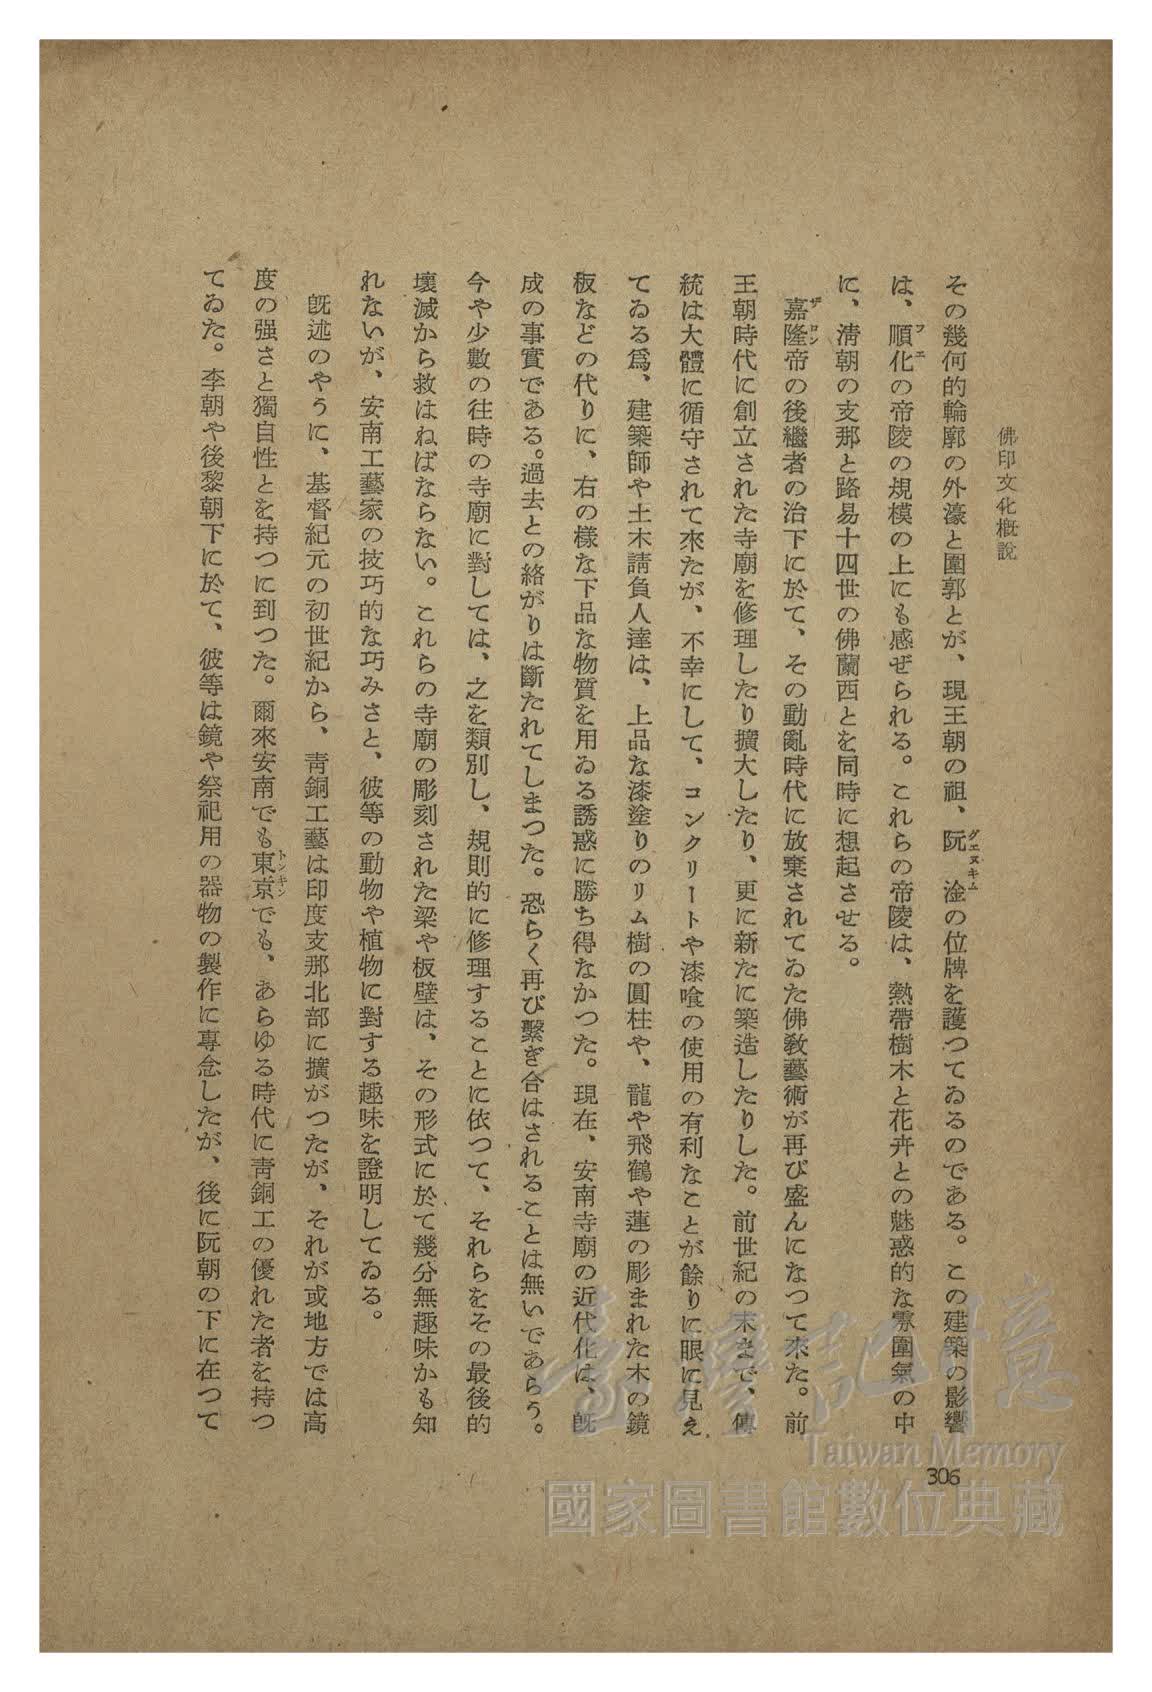 佛印文化概說
その幾何的輪廓の外濠と圍郭とが、現王朝の祖、阮淦の位牌を護つてゐるのである。この建築の影響
グエヌキム
は、順化の帝陵の規模の上にも感ぜられる。これらの帝陵は、熱帶樹木と花卉との魅惑的な雰圍氣の中
フエ
に、淸朝の支那と路易十四世の佛蘭西とを同時に想起させる。
嘉隆帝の後繼者の治下に於て、その動亂時代に放棄されてゐた佛敎藝術が再び盛んになつて來た。前
ザロン
王朝時代に創立された寺廟を修理したり擴大したり、更に新たに築造したりした。前世紀の末まで、傳
統は大體に循守されて來たが、不幸にして、コンクリートや漆喰の使用の有利なことが餘りに眼に見え
てゐる爲、建築師や土木請負人達は、上品な漆塗りのリム樹の圓柱や、龍や飛鶴や蓮の彫まれた木の鏡
板などの代りに、右の樣な下品な物質を用ゐる誘惑に勝ち得なかつた。現在、安南寺廟の近代化は、旣
成の事實である。過去との絡がりは斷たれてしまつた。恐らく再び繫ぎ合はされることは無いであらう。
今や少數の往時の寺廟に對しては、之を類別し、規則的に修理することに依つて、それらをその最後的
壞滅から救はねばならない。これらの寺廟の彫刻された梁や板壁は、その形式に於て幾分無趣味かも知
れないが、安南工藝家の技巧的な巧みさと、彼等の動物や植物に對する趣味を證明してゐる。
旣述のやうに、基督紀元の初世紀から、靑銅工藝は印度支那北部に擴がつたが、それが或地方では高
度の强さと獨自性とを持つに到つた。爾來安南でも東京でも、あらゆる時代に靑銅工の優れた者を持つ
トンキン
てゐた。李朝や後黎朝下に於て、彼等は鏡や祭祀用の器物の製作に專念したが、後に阮朝の下に在つて
306
臺灣記憶
Taiwan Memory
國家圖書館數位典藏